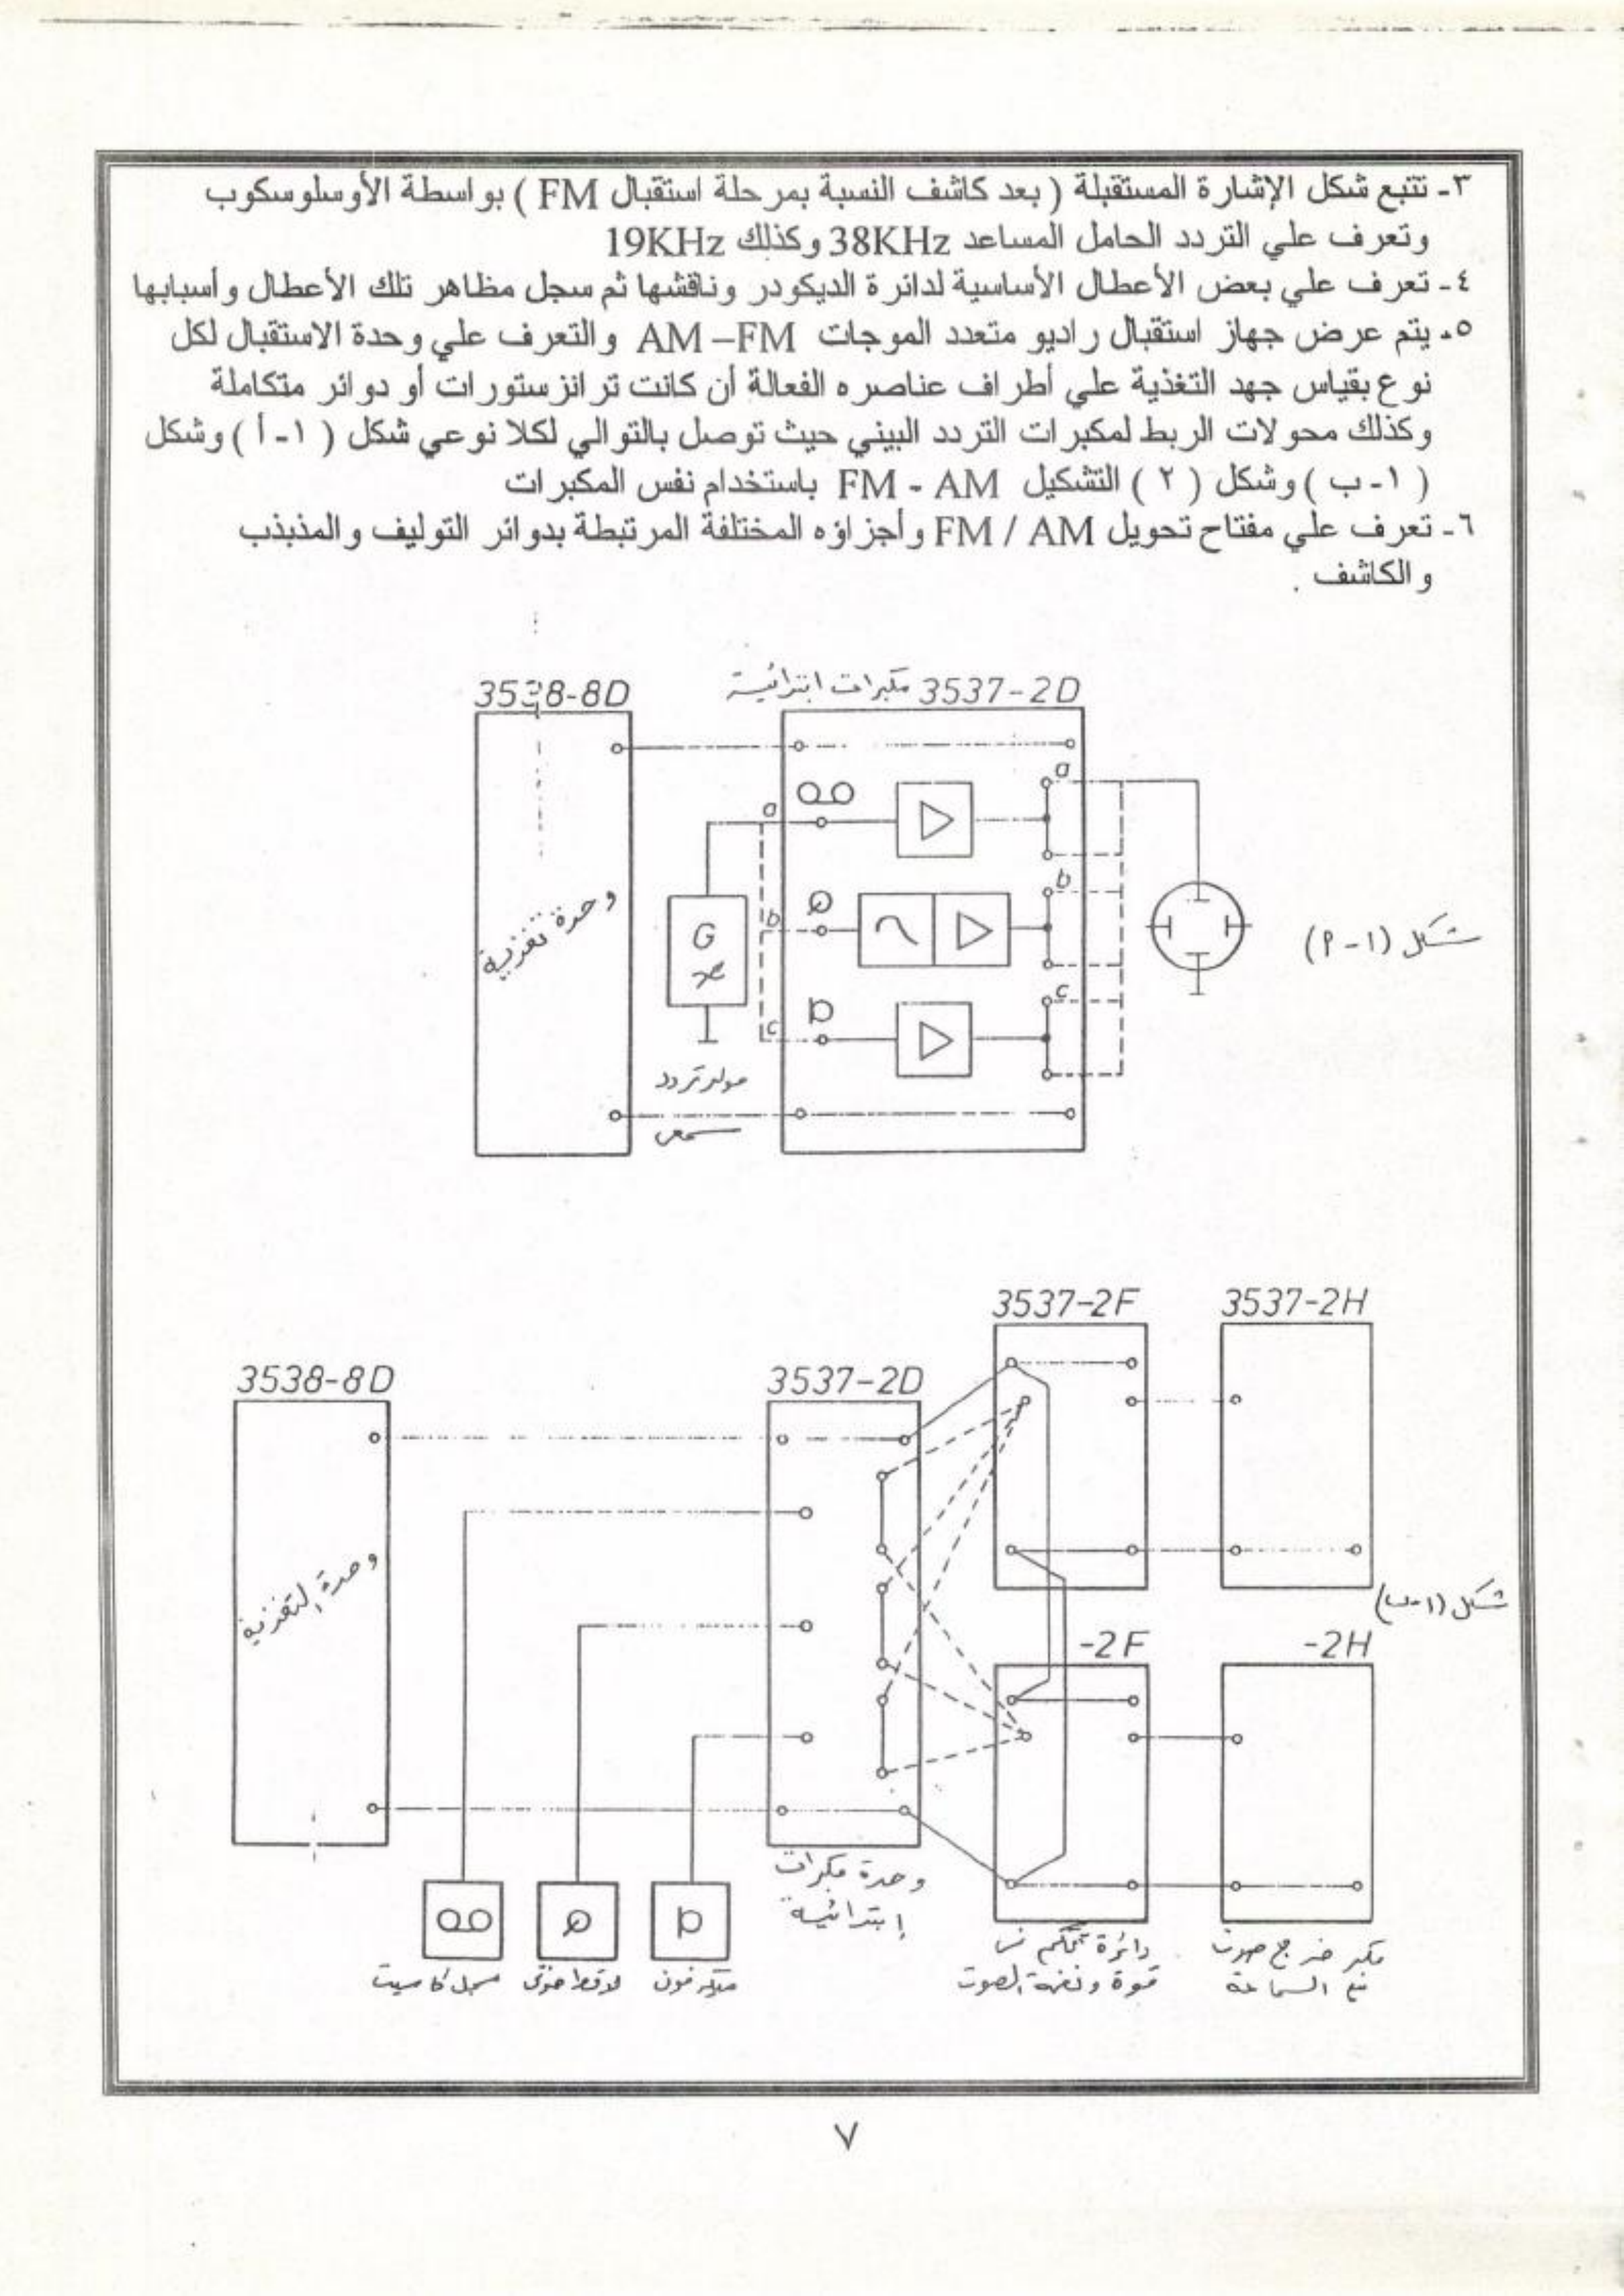 ٣- تتبع شكل الإشارة المستقبلة ( بعد كاشف النسبة بمرحلة استقبال FM ) بواسطة الأوسلوسكوب
وتعرف علي التردد الحامل المساعد 38KHz وكذلك 19KHz
٤- تعرف علي بعض الأعطال الأساسية لدائرة الديكودر وناقشها ثم سجل مظاهر تلك الأعطال وأسبابها
٥- يتم عرض جهاز استقبال راديو متعدد الموجات AM – FM والتعرف علي وحدة الاستقبال لكل
نوع بقياس جهد التغذية علي أطراف عناصره الفعالة أن كانت ترانزستورات أو دوائر متكاملة
وكذلك محولات الربط لمكبرات التردد البيني حيث توصل بالتوالي لكلا نوعي شكل ( ١- أ ) وشكل
( ١- ب ) وشكل ( ٢ ) التشكيل FM - AM باستخدام نفس المكبرات
٦- تعرف علي مفتاح تحويل FM / AM وأجزاؤه المختلفة المرتبطة بدوائر التوليف والمذبذب
والكاشف .
3538-8D
مكبرات ابتدائية 3537-2D
a
a
b
b
c
c
G
وحدة تغذية
مولد تردد
سمعى
شكل (١-أ)
3537-2F
3537-2H
3538-8D
3537-2D
وحدة التغذية
شكل (١-ب)
-2F
-2H
وحدة مكبرات
إبتدائية
دائرة تحكم فى
قوة ونغمة الصوت
مكبر خرج صوت
مع السماعة
مسجل كاسيت
لاقط صوتى
ميكرفون
٧